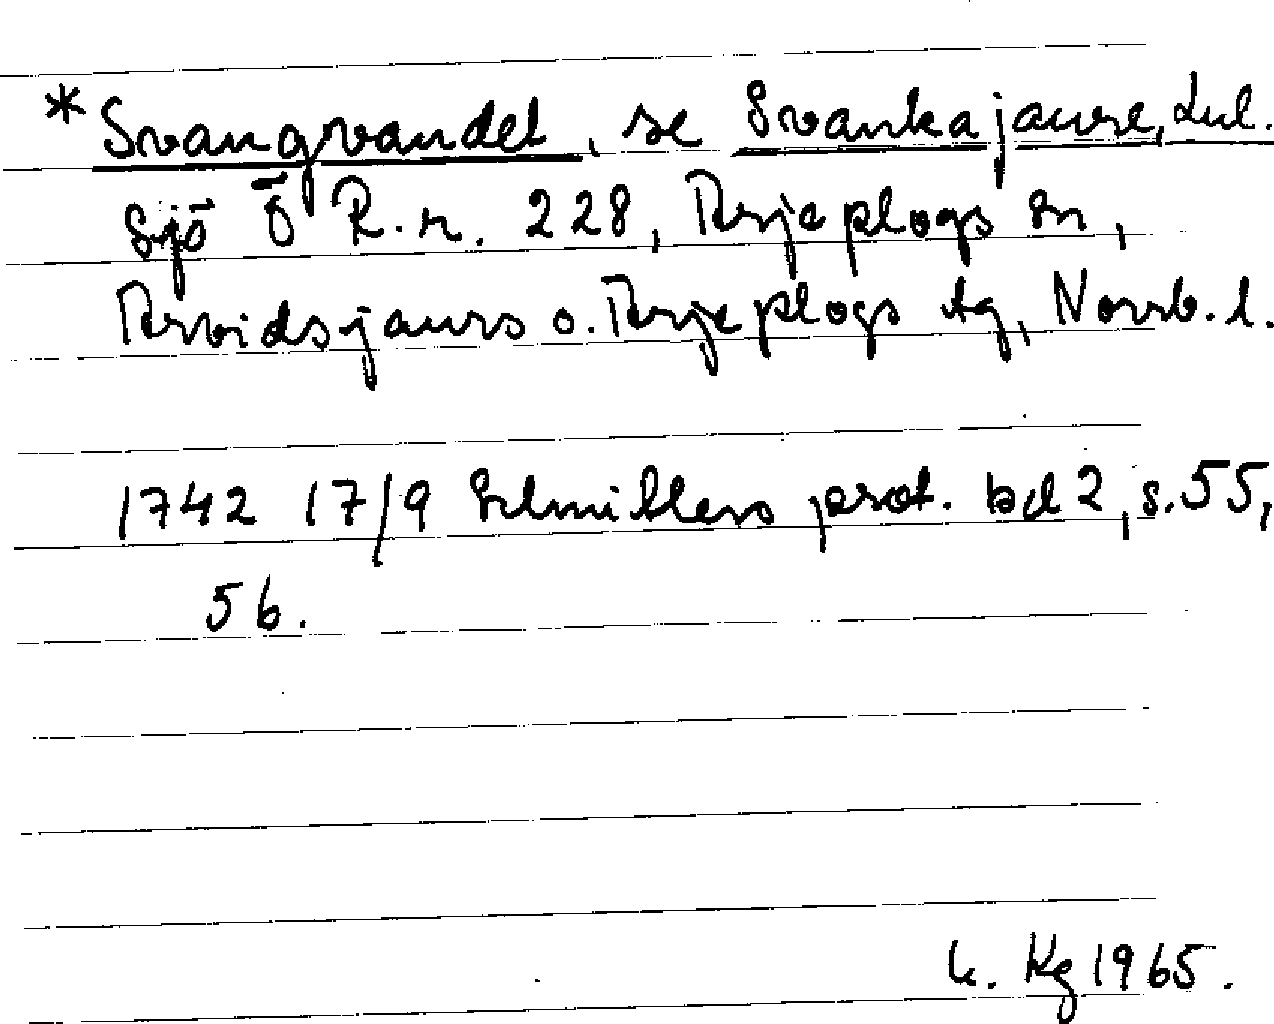 *Svangvandet, se Svankajaure, Lul.
Sjö Ö R.r. 228, Arjeplogs sn,
Arvidsjaurs o. Arjeplogs tg, Norrb. l.
1742 17/9 Schnitlers prot. bd 2, s. 55,
56.
Kg 1965.